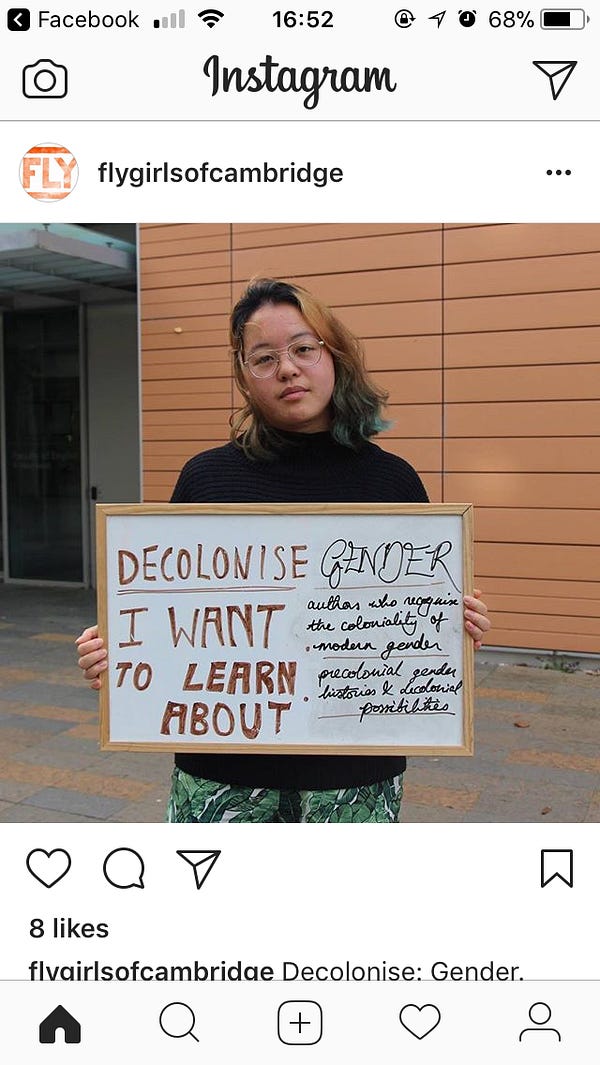 Facebook 16:52 68%
Instagram
FLY flygirlsofcambridge
DECOLONISE
I WANT
TO LEARN
ABOUT
GENDER
authors who recognise
the coloniality of
modern gender
precolonial gender
histories & decolonial
possibilities
8 likes
flygirlsofcambridge Decolonise: Gender.